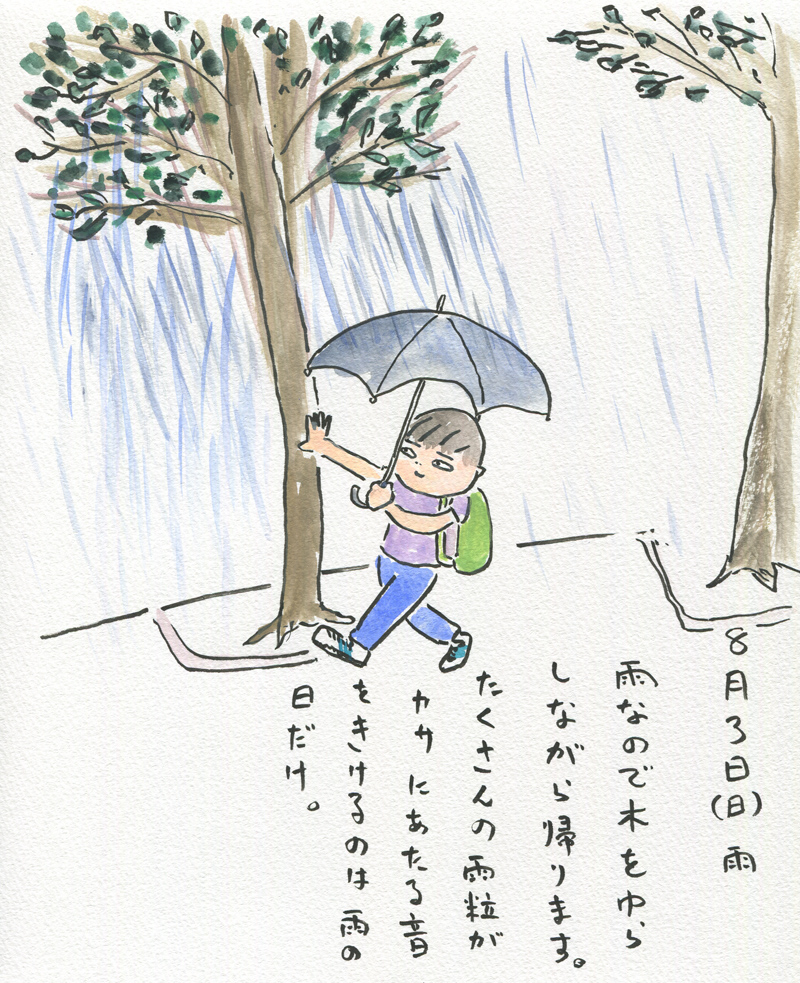 8月3日(日) 雨
雨なので木をゆら
しながら帰ります。
たくさんの雨粒が
カサにあたる音
をきけるのは雨の
日だけ。